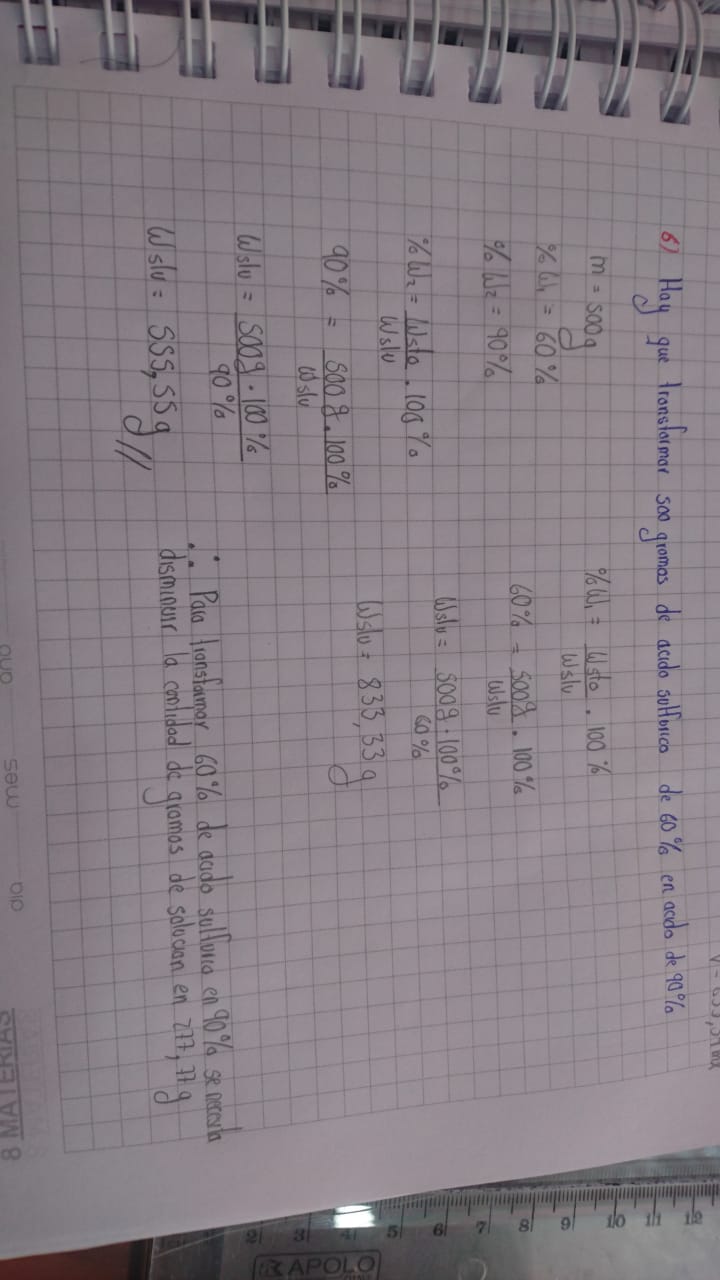 6) Hay que transformar 500 gramos de acido sulfurico de 60% en acido de 90%
m = 500g
%W₁ = 60%
%W₂ = 90%
%W₂ = Wsto / Wslu . 100%
90% = 500g . 100% / Wslu
Wslu = 500g . 100% / 90%
Wslu = 555,55g //
%W₁ = Wsto / Wslu . 100%
60% = 500g / Wslu . 100%
Wslu = 500g . 100% / 60%
Wslu = 833,33g
∴ Para transformar 60% de acido sulfurico en 90% se necesita
disminuir la cantidad de gramos de solucion en 277,77g
8 MATERIAS
2 3 4 5 6 7 8 9 10 11 12
APOLO